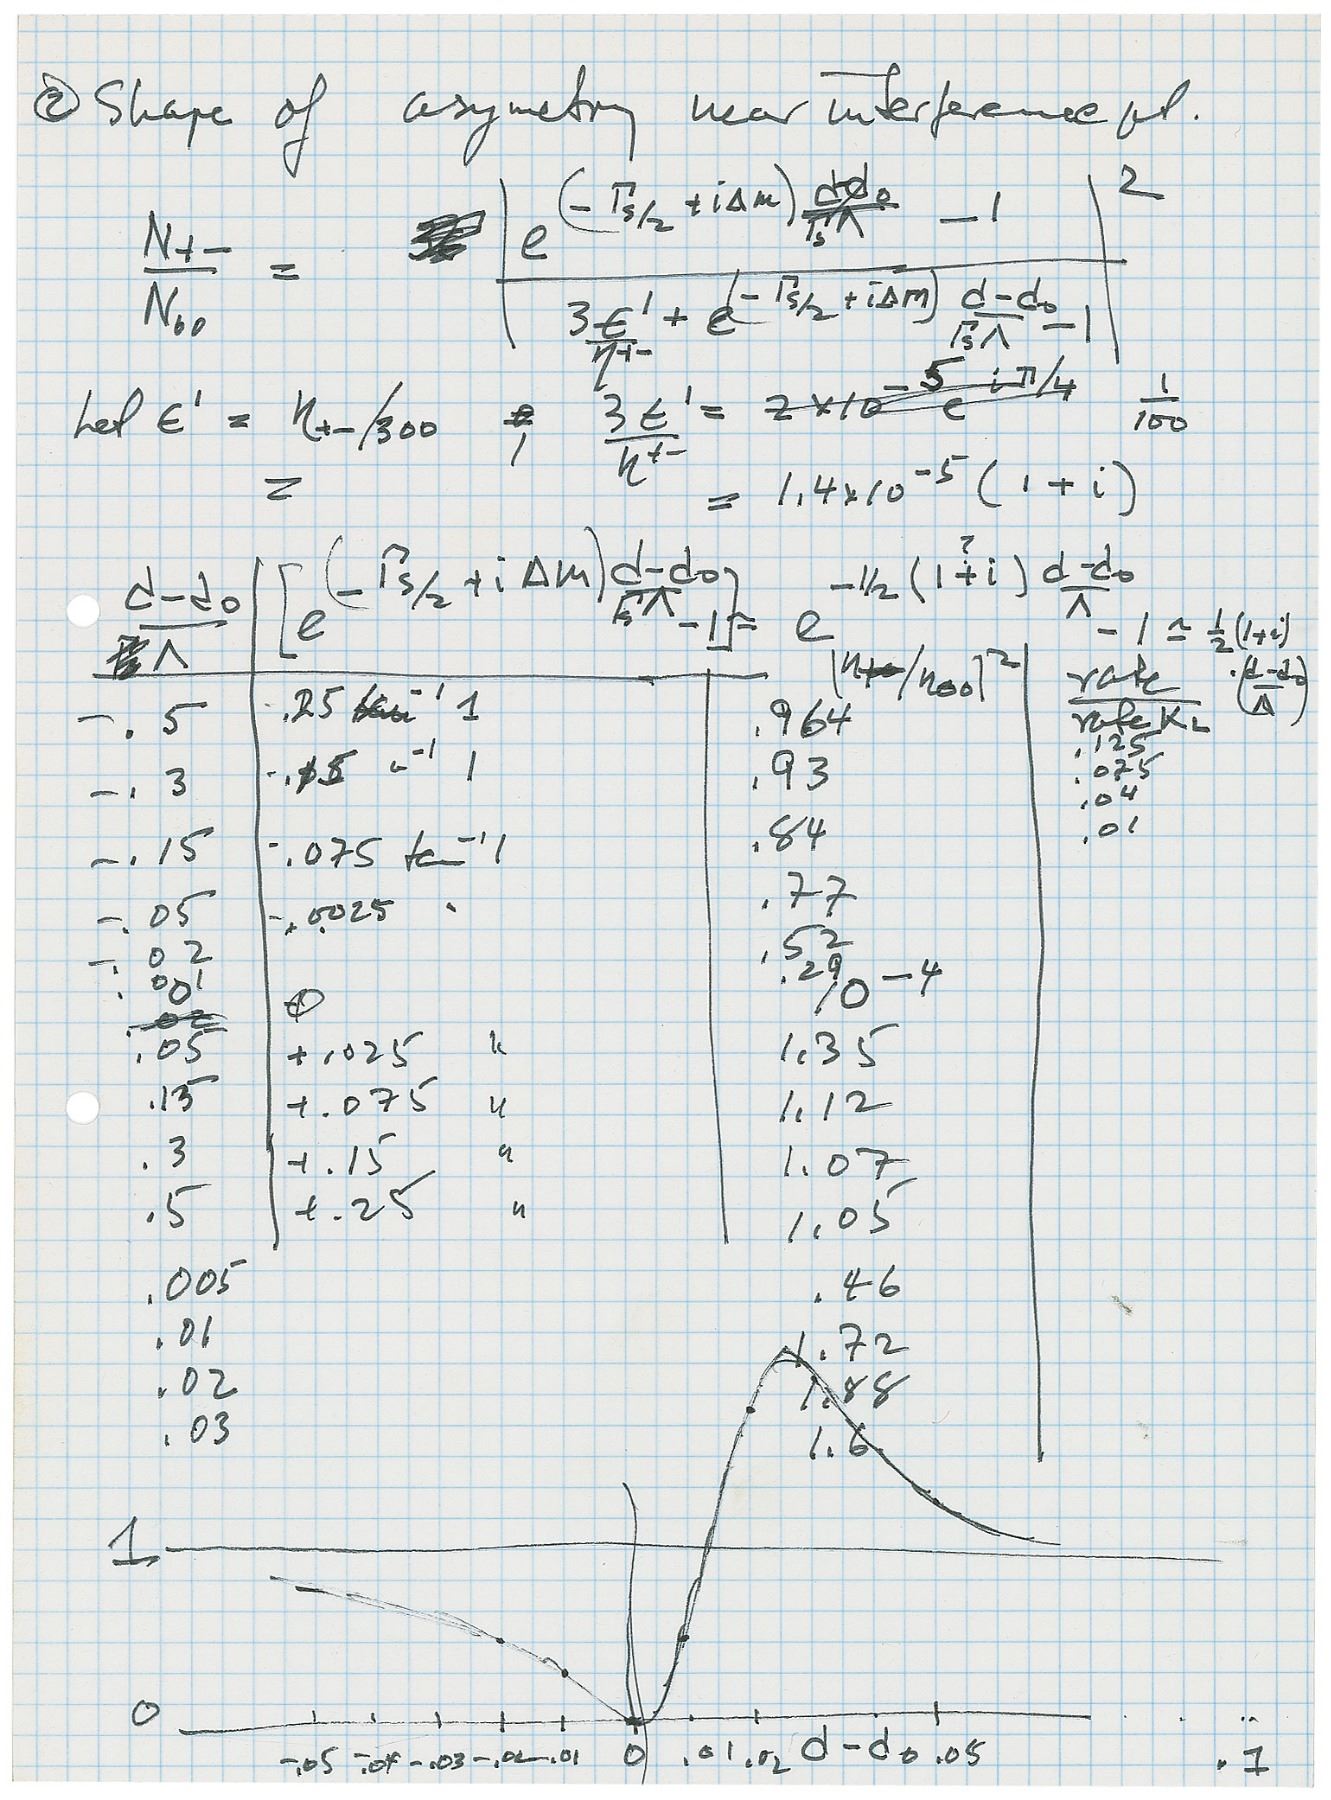 ② Shape of asymetry near interference pt.
N+- / N00 = | e^(-Γs/2 + iΔm) d-d0/ΓsΛ - 1 |^2
3ε'/η+- + e^(-Γs/2 + iΔm) d-d0/ΓsΛ - 1
Let ε' = η+-/300 , 3ε'/η+- = 2×10^-5 e^iπ/4 1/100
= = 1.4×10^-5 (1+i)
d-d0/Λ [e^(-Γs/2 + iΔm) d-d0/ΓsΛ - 1] = e^-1/2(1+i) d-d0/Λ - 1 ≃ 1/2(1+i)·(d-d0/Λ)
?
|η+-/η00|^2 rate/rate KL
-.5 -.25 tan^-1 1 .964 .125
-.3 -.15 "^-1 1 .93 .075
-.15 -.075 tan^-1 1 .84 .04
.01
-.05 -.0025 " .77
-.02 .52
.001 0 .29 10^-4
.02
.05 +.025 " 1.35
.15 +.075 " 1.12
.3 +.15 " 1.07
.5 +.25 " 1.05
.005 .46
.01 1.72
.02 1.88
.03 1.6
1
0
-.05 -.04 -.03 -.02 -.01 0 .01 .02 d-d0 .05 .1